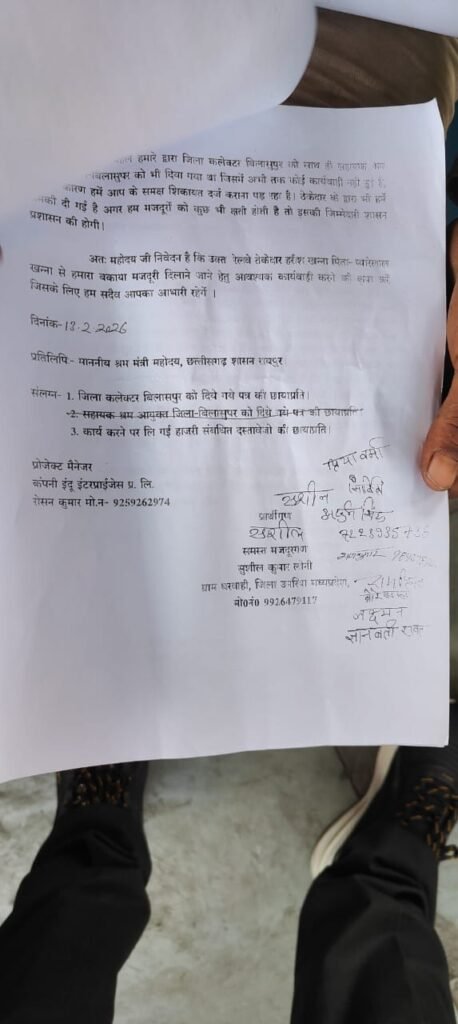 हमारे द्वारा जिला कलेक्टर बिलासपुर को साथ ही सहायक श्रम
बिलासपुर को भी दिया गया था जिसमें अभी तक कोई कार्यवाही नहीं हुई है,
कारण हमें आप के समक्ष शिकायत दर्ज कराना पड़ रहा है। ठेकेदार के द्वारा भी हमें
की दी गई है अगर हम मजदूरों को कुछ भी क्षती होती है तो इसकी जिम्मेदारी शासन
प्रशासन की होगी।
अतः महोदय जी निवेदन है कि उक्त रेलवे ठेकेदार हरीश खन्ना पिता- प्यारेलाल
खन्ना से हमारा बकाया मजदूरी दिलाने जाने हेतु आवश्यक कार्यवाही करने की कृपा करें
जिसके लिए हम सदैव आपका आभारी रहेगें ।
दिनांक-13.2.2026
प्रतिलिपि:- माननीय श्रम मंत्री महोदय, छत्तीसगढ़ शासन रायपुर
संलग्न- 1. जिला कलेक्टर बिलासपुर को दिये गये पत्र की छायाप्रति।
2. सहायक श्रम आयुक्त जिला-बिलासपुर को दिये गये पत्र की छायाप्रति।
3. कार्य करने पर लि गई हाजरी संबंधित दस्तावेजो की छायाप्रति।
प्रोजेक्ट मैनेजर
कंपनी इंदू इंटरप्राईजेस प्र. लि.
रोसन कुमार मो.न- 9259262974
प्रिया वर्मा
सुशील
प्रार्थीगण अर्जुन सिंह
सुशील
समस्त मजदूरगण
सुशील कुमार सोनी
ग्राम धरवाही, जिला उमरिया मध्यप्रदेश,
मो0नं0 9926479117
लक्ष्मन
ज्ञानवती रावत